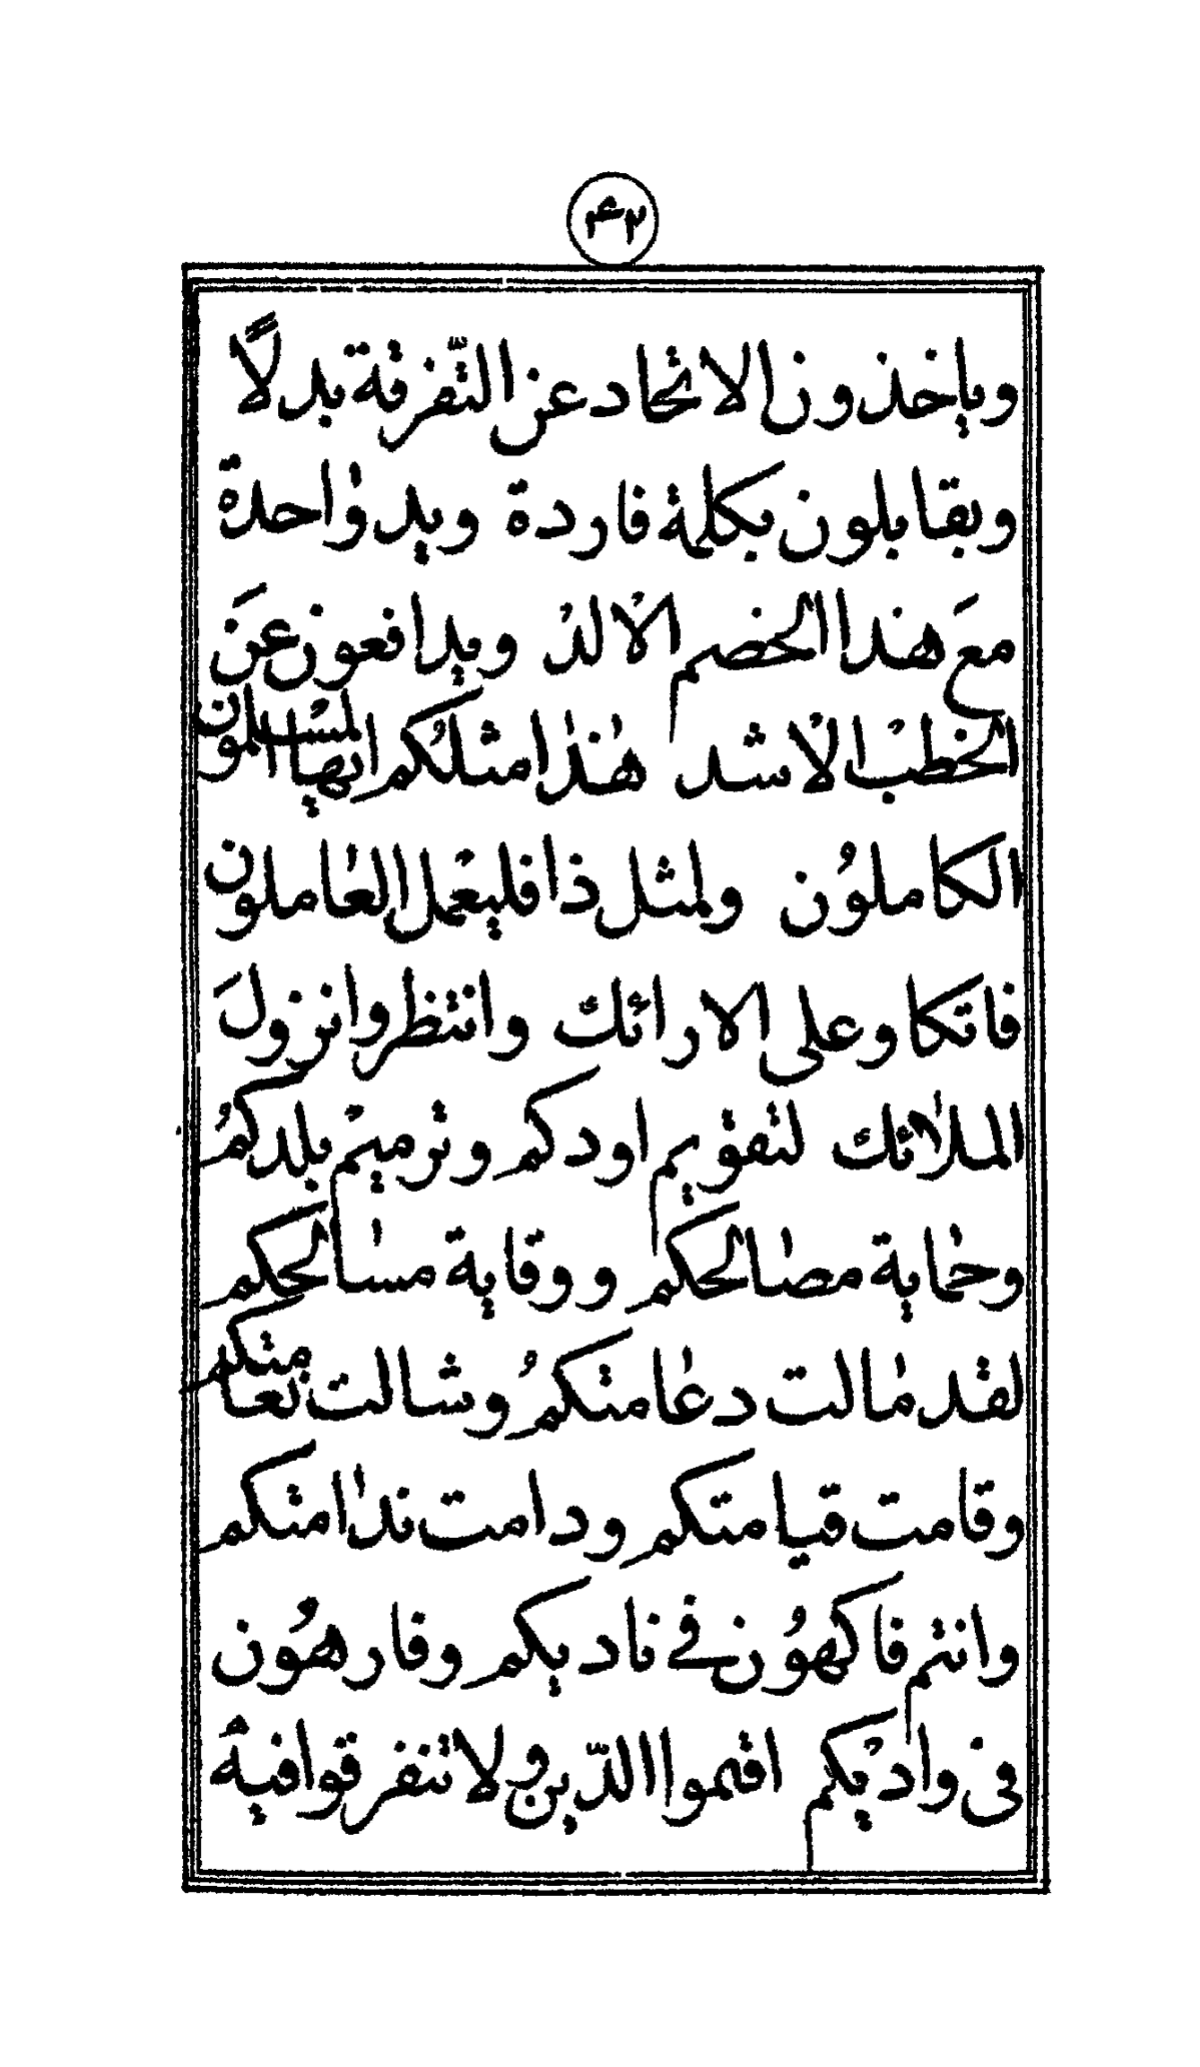 ۴۲
وياخذون الاتحاد عن التّفرقة بدلاً
ويقابلون بكلمة فاردة ويد واحدة
معَ هذا الخصم الالدْ ويدافعون عنَ
الخطبْ الاشد هٰذا مثلُكم ايها المسْلمون
الكاملوُن ولمثل ذا فليعْمل العٰاملون
فاتكاوعلى الارائك وانتظروا نزولَ
الملٰائك لتقويم اودكم وترميمْ بلدكمُ
وحمٰاية مصٰالحكم ووقاية مسٰالحكم
لقد مٰالت دعٰامتكمُ وشالت نعامتكم
وقامت قيامتكم ودامت ندٰامتكم
وانتم فاكهوُن في ناديكم وفارهوُن
فى واديْكم اقيموا الدّين ولا تتفرقوا فيهْ